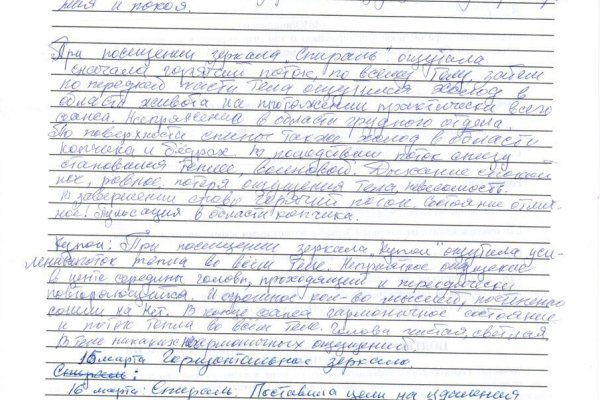 ния и покоя.
При посещении зеркала „Спираль" ощутила
сначала горячий поток, по всему телу, затем
по передней части тела ощущался холод в
области живота на протяжении практически всего
сеанса. Напряжение в области грудного отдела.
По поверхности спины также холод в области
копчика и бёдрах. В последствии поток снизу
становился теплее, волновой. Дыхание спокой-
ное, ровное, потеря ощущения тела, невесомость.
В завершении снова горячий поток. Состояние отлич-
ное. Пульсация в области копчика.
Купол: При посещении зеркала „Купол" ощутила уси-
ление поток тепла во всём теле. Неприятное ощущение
в центре середины головы, проходящий и периодически
повторяющийся. И огромное кол-во мыслей, постепенно
сошли на нет. В конце сеанса гармоничное состояние
и поток тепла во всём теле. Голова чистая, светлая,
в теле никаких негармоничных ощущений.
15 марта Горизонтальное зеркало.
Спираль:
16 марта: Спираль. Поставила цели на